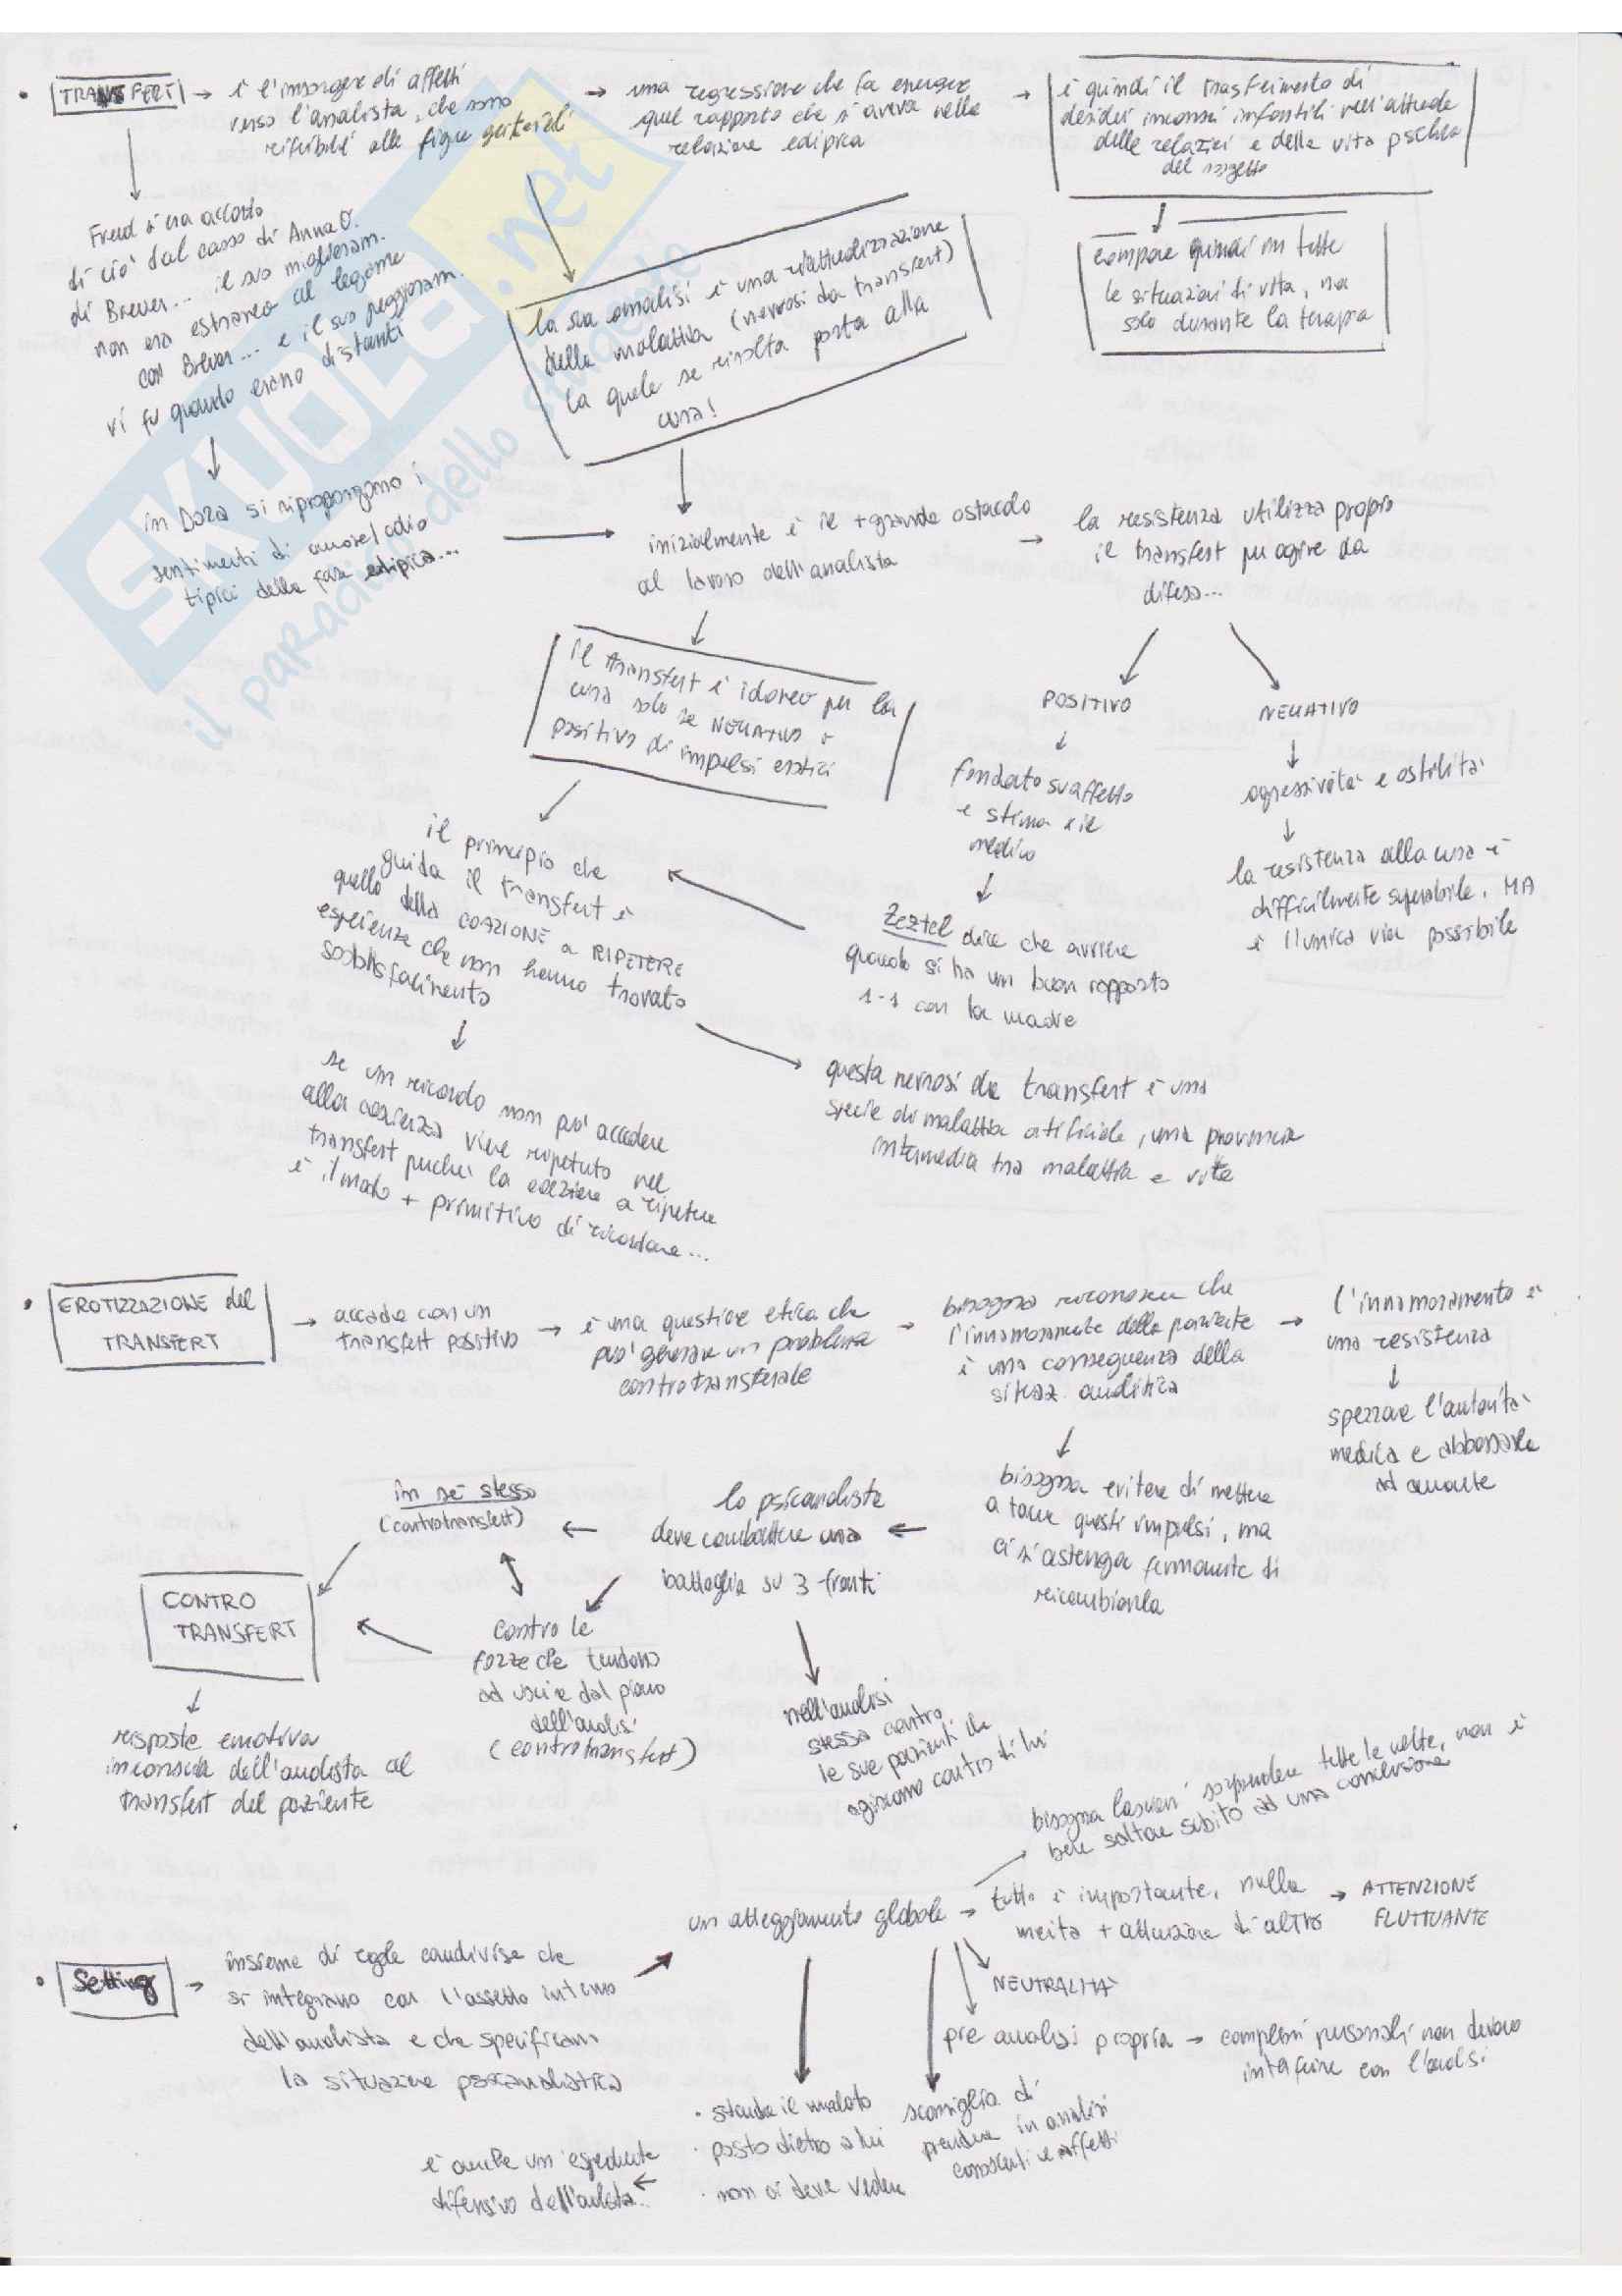 • TRANSFERT → è l'insorgere di affetti
verso l'analista, che sono
riferibili alle figure genitoriali
→ una regressione che fa emergere
quel rapporto che si aveva nella
relazione edipica
→ è quindi il trasferimento di
desideri inconsci infantili nell'attuale
delle relazioni e della vita psichica
del soggetto
compare quindi in tutte
le situazioni di vita, no
solo durante la terapia
Freud si era accorto
di ciò dal caso di Anna O.
di Breuer... il suo miglioram.
non era estraneo al legame
con Breuer... e il suo peggioram.
vi fu quando erano distanti
la sua analisi è una riattualizzazione
della malattia (nevrosi da transfert)
la quale se risolta porta alla
cura!
in Dora si ripropongono i
sentimenti di amore/odio
tipici della fase edipica...
→ inizialmente è il + grande ostacolo
al lavoro dell'analista
→ la resistenza utilizza proprio
il transfert per agire da
difesa...
il transfert è idoneo per la
cura solo se NEGATIVO o
positivo di impulsi erotici
POSITIVO
fondato su affetto
e stima x il
medico
Zeztel dice che avviene
quando si ha un buon rapporto
1-1 con la madre
NEGATIVO
aggressività e ostilità
la resistenza alla cura è
difficilmente superabile, MA
è l'unica via possibile
il principio che
guida il transfert è
quello della COAZIONE a RIPETERE
esperienze che non hanno trovato
soddisfacimento
se un ricordo non può accedere
alla coscienza viene ripetuto nel
transfert perchè la coazione a ripetere
è il modo + primitivo di ricordare...
questa nevrosi da transfert è una
specie di malattia artificiale, una provincia
intermedia tra malattia e vita
• EROTIZZAZIONE del
TRANSFERT
→ accade con un
transfert positivo
→ è una questione etica che
può generare un problema
controtransferale
→ bisogna riconoscere che
l'innamoramento della paziente
è una conseguenza della
situaz. analitica
→ l'innamoramento è
una resistenza
spezzare l'autorità
medica e abbassarla
ad amante
bisogna evitare di mettere
a tacere questi impulsi, ma
ci si astenga fermamente di
ricambiarla
lo psicanalista
deve combattere una
battaglia su 3 fronti
in sè stesso
(controtransfert)
contro le
forze che tendono
ad uscire dal piano
dell'analisi
(controtransfert)
nell'analisi
stessa contro
le sue pazienti che
agiscono contro di lui
CONTRO
TRANSFERT
risposte emotiva
inconscia dell'analista al
transfert del paziente
• Setting → insieme di regole condivise che
si integrano con l'assetto interno
dell'analista e che specificano
la situazione psicoanalitica
un atteggiamento globale
bisogna lasciarsi sorprendere tutte le volte, non è
bene saltare subito ad una conclusione
→ tutto è importante, nulla
merita + attenzione di altro
→ ATTENZIONE
FLUTTUANTE
NEUTRALITÀ
pre analisi propria → complessi personali non devono
interferire con l'analisi
sconsiglia di
prendere in analisi
conoscenti e affetti
• il malato
• posto dietro a lui
• non ci deve vedere
← è anche un espediente
difensivo dell'analista..
SKUOLA.net
il paradiso dello studente